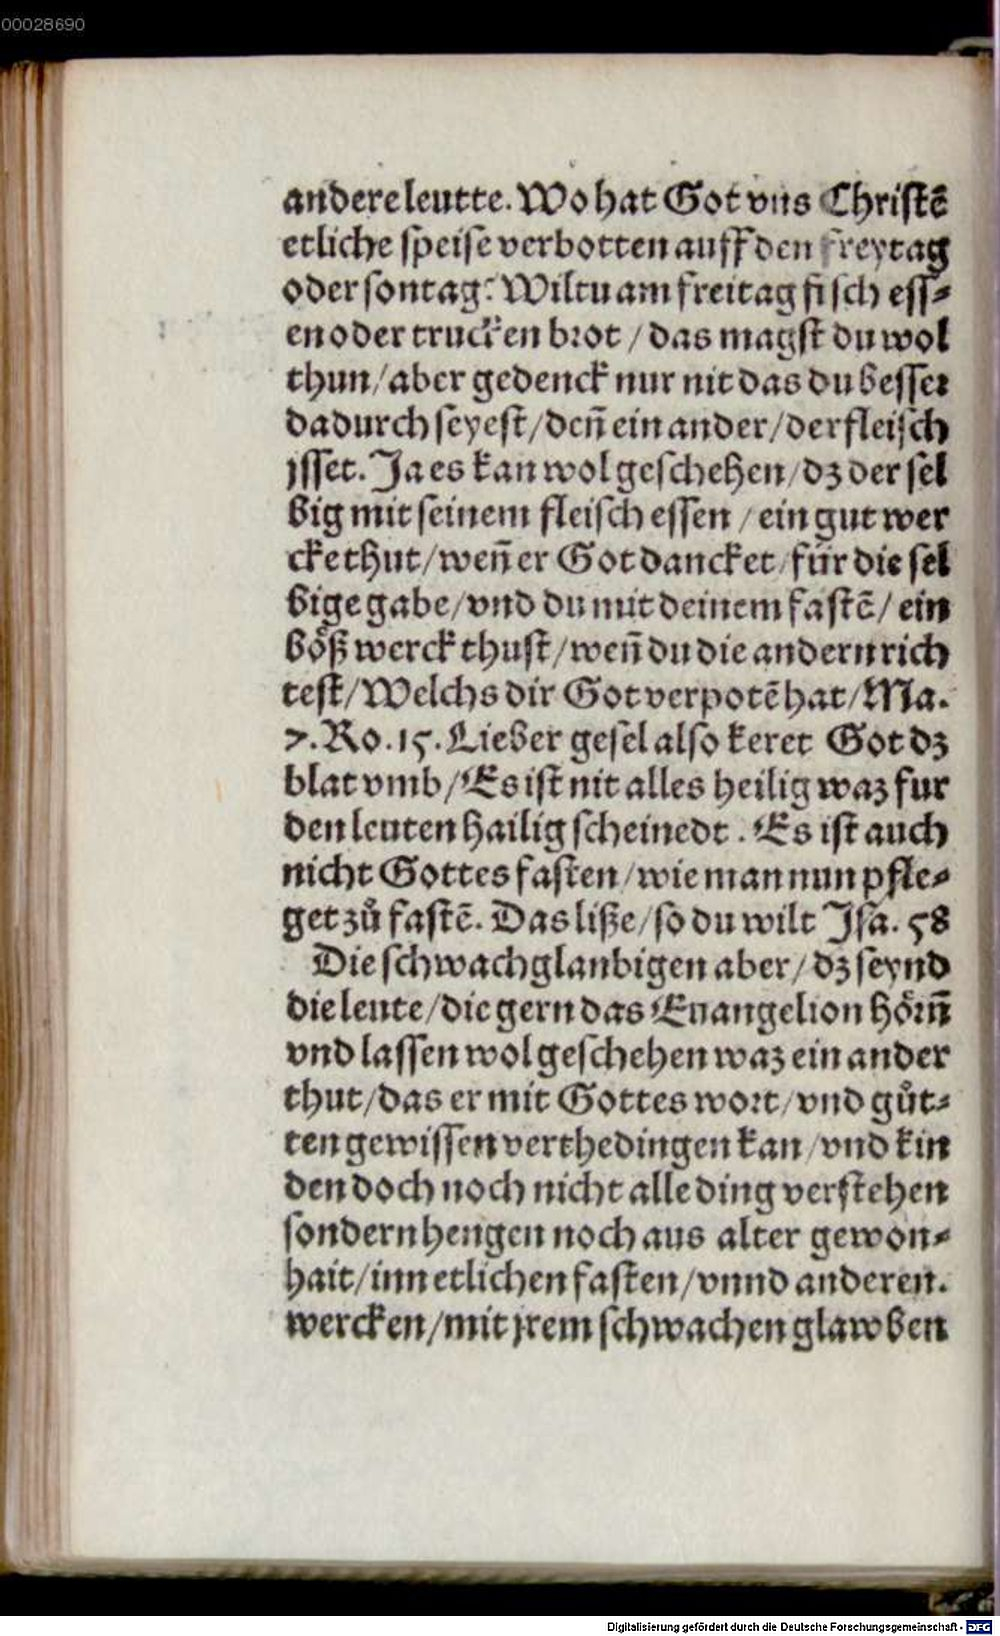 00028690
andere leutte. Wo hat Got vns Christē
etliche speise verbotten auff den freytag
oder sontag? Wiltu am freitag fisch ess⸗
en oder trucken brot / das magst du wol
thun / aber gedenck nur nit das du besser
dadurch seyest / deñ ein ander / der fleisch
jsset. Ja es kan wol geschehen / dz der sel
big mit seinem fleisch essen / ein gut wer
cke thut / weñ er Got dancket / für die sel
bige gabe / vnd du mit deinem fastē / ein
böß werck thust / weñ du die andern rich
test / Welchs dir Got verpotē hat / Ma.
7. Ro. 15. Lieber gesel also keret Got dz
blat vmb / Es ist nit alles heilig waz fur
den leuten hailig scheinedt. Es ist auch
nicht Gottes fasten / wie man nun pfle⸗
get zů fastē. Das liße / so du wilt Jsa. 58
Die schwachglanbigen aber / dz seynd
die leute / die gern das Euangelion hörñ
vnd lassen wol geschehen waz ein ander
thut / das er mit Gottes wort / vnd gůt⸗
ten gewissen verthedingen kan / vnd kin
den doch noch nicht alle ding verstehen
sondern hengen noch aus alter gewon⸗
hait / inn etlichen fasten / vnnd anderen.
wercken / mit jrem schwachen glawben
Digitalisierung gefördert durch die Deutsche Forschungsgemeinschaft - DFG